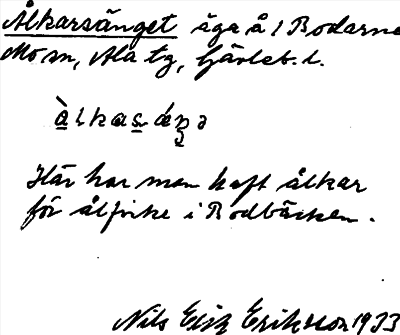 Ålkarsänget äga å 1 Bodarne
Mo sn, Ala tg, Gävleb. l.
àlkasæŋə
Här har man haft ålkar
för ålfiske i Bodbäcken.
Nils Erik Eriksson 1933